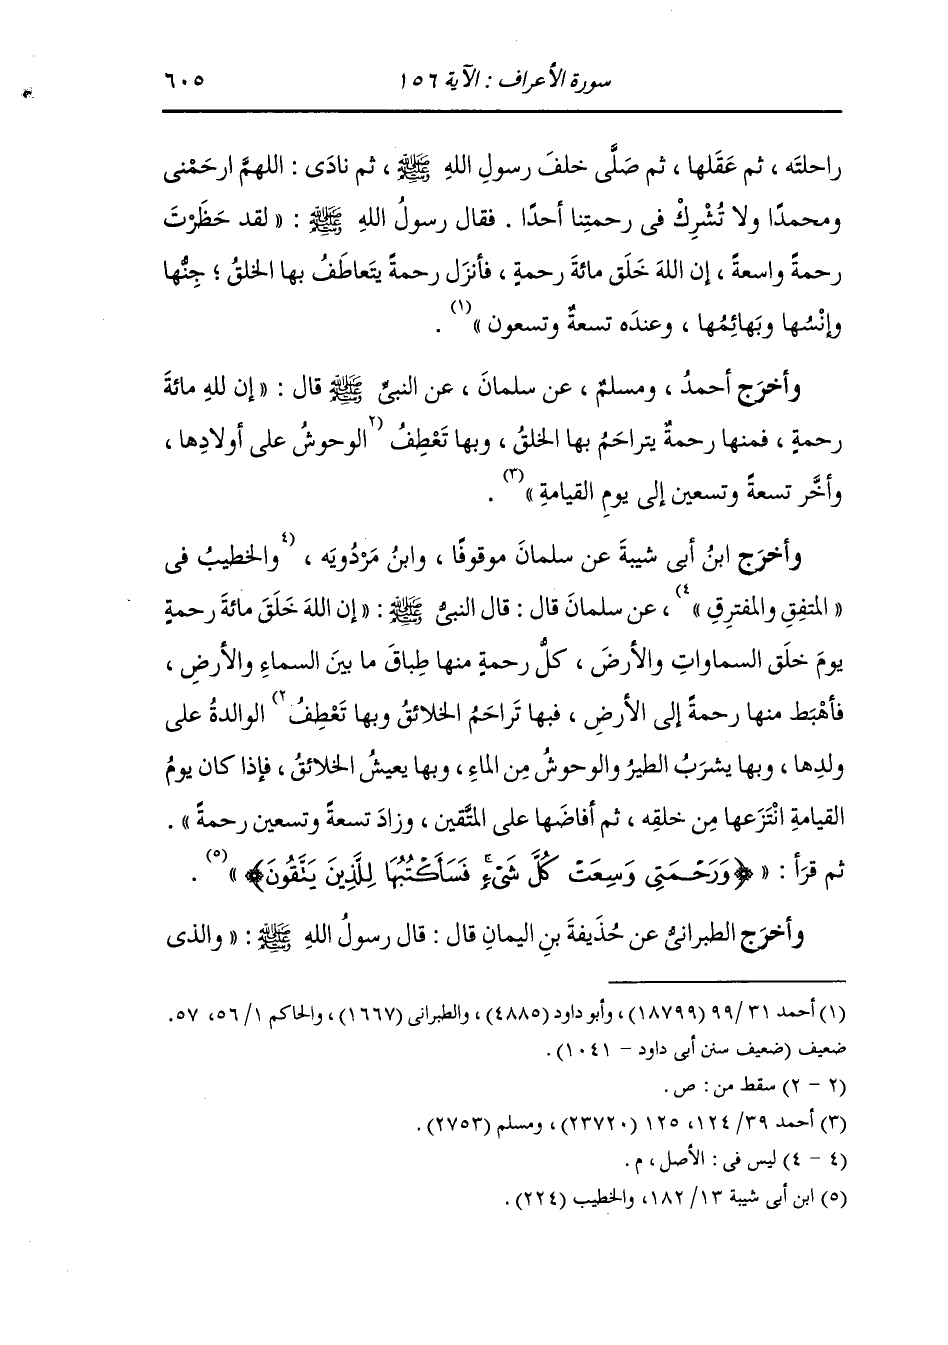 سورة الأعراف : الآية ١٥٦ ٦٠٥
راحلتَه ، ثم عَقَلها ، ثم صَلَّى خلفَ رسولِ اللهِ ﷺ ، ثم نادَى : اللهمَّ ارحَمْنى
ومحمدًا ولا تُشْرِكْ فى رحمتِنا أحدًا . فقال رسولُ اللهِ ﷺ : « لقد حَظَرْتَ
رحمةً واسعةً ، إن اللهَ خَلَق مائةَ رحمةٍ ، فأنزَل رحمةً يتَعاطَفُ بها الخلقُ ؛ جِنُّها
وإنْسُها وبَهائِمُها ، وعندَه تسعةٌ وتسعون »(١) .
وأخرَج أحمدُ ، ومسلمٌ ، عن سلمانَ ، عن النبىِّ ﷺ قال : « إن للهِ مائةَ
رحمةٍ ، فمنها رحمةٌ يتراحَمُ بها الخلقُ ، وبها تَعْطِفُ (٢الوحوشُ على أولادِها ،
وأخَّر تسعةً وتسعين إلى يومِ القيامةِ »(٣) .
وأخرَج ابنُ أبى شيبةَ عن سلمانَ موقوفًا ، وابنُ مَرْدُويَه ، (٤والخطيبُ فى
« المتفِقِ والمفترِقِ »٤) ، عن سلمانَ قال : قال النبىُّ ﷺ : « إن اللهَ خَلَقَ مائةَ رحمةٍ
يومَ خلَق السماواتِ والأرضَ ، كلُّ رحمةٍ منها طِباقَ ما بينَ السماءِ والأرضِ ،
فأهْبَط منها رحمةً إلى الأرضِ ، فبها تَراحَمُ الخلائقُ وبها تَعْطِفُ٢) الوالدةُ على
ولدِها ، وبها يشرَبُ الطيرُ والوحوشُ مِن الماءِ ، وبها يعيشُ الخلائقُ ، فإذا كان يومُ
القيامةِ انْتَزَعها مِن خلقِه ، ثم أفاضَها على المتَّقين ، وزادَ تسعةً وتسعين رحمةً » .
ثم قرَأ : « ﴿وَرَحْمَتِى وَسِعَتْ كُلَّ شَىْءٍ فَسَأَكْتُبُهَا لِلَّذِينَ يَتَّقُونَ﴾ »(٥) .
وأخرَج الطبرانىُّ عن حُذَيفةَ بنِ اليمانِ قال : قال رسولُ اللهِ ﷺ : « والذى
(١) أحمد ٣١/ ٩٩ (١٨٧٩٩) ، وأبو داود (٤٨٨٥) ، والطبرانى (١٦٦٧) ، والحاكم ١/ ٥٦، ٥٧.
ضعيف (ضعيف سنن أبى داود - ١٠٤١) .
(٢ - ٢) سقط من : ص .
(٣) أحمد ٣٩/ ١٢٤، ١٢٥ (٢٣٧٢٠) ، ومسلم (٢٧٥٣) .
(٤ - ٤) ليس فى : الأصل ، م .
(٥) ابن أبى شيبة ١٣/ ١٨٢، والخطيب (٢٢٤) .